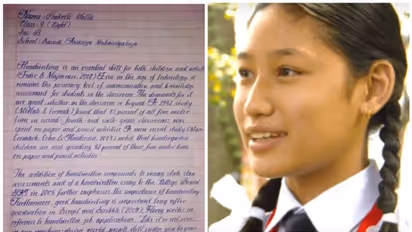 Name: Prakriti Malla
Class: 8 (Eight)
Sec: 'B'
School: Sainik Awasiya Mahavidyalaya
Handwriting is an essential skill for both children and adults
(Feder & Majnemer, 2007). Even in the age of technology, it
remains the primary tool of communication and knowledge
assessment for students in the classroom. The demands for it
are great, whether in the classroom or beyond. A 1992 study
(McHale & Cermak) found that 85 percent of all fine motor
time in second- fourth- and sixth- grade classrooms was
spent on paper and pencil activities. A more recent study (Marr,
Cermak, Cohn & Henderson, 2003) noted that kindergarten
children are now spending 42 percent of their fine motor time
on paper and pencil activities.
The addition of handwritten components to many state
assessments and of a handwritten essay to the College Board
SAT in 2005 further emphasize the importance of handwriting.
Furthermore, good handwriting is important long after
graduation in Script and Scribble (2009), Florey writes in
reference to handwritten job applications. Like it or not, even
in our machine-driven world, people still judge you by